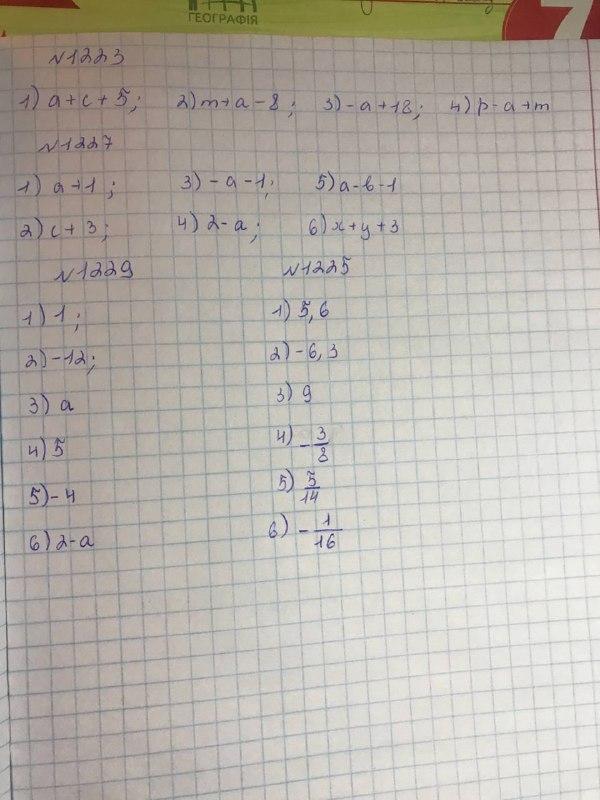 ГЕОГРАФІЯ
7
№1223
1) a+c+5; 2) m+a-8; 3) -a+18; 4) p-a+m
№1227
1) a+1; 3) -a-1; 5) a-b-1
2) c+3; 4) 2-a; 6) x+y+3
№1229 №1225
1) 1; 1) 5,6
2) -12; 2) -6,3
3) a 3) 9
4) 5 4) -3/8
5) -4 5) 5/14
6) 2-a 6) -1/16